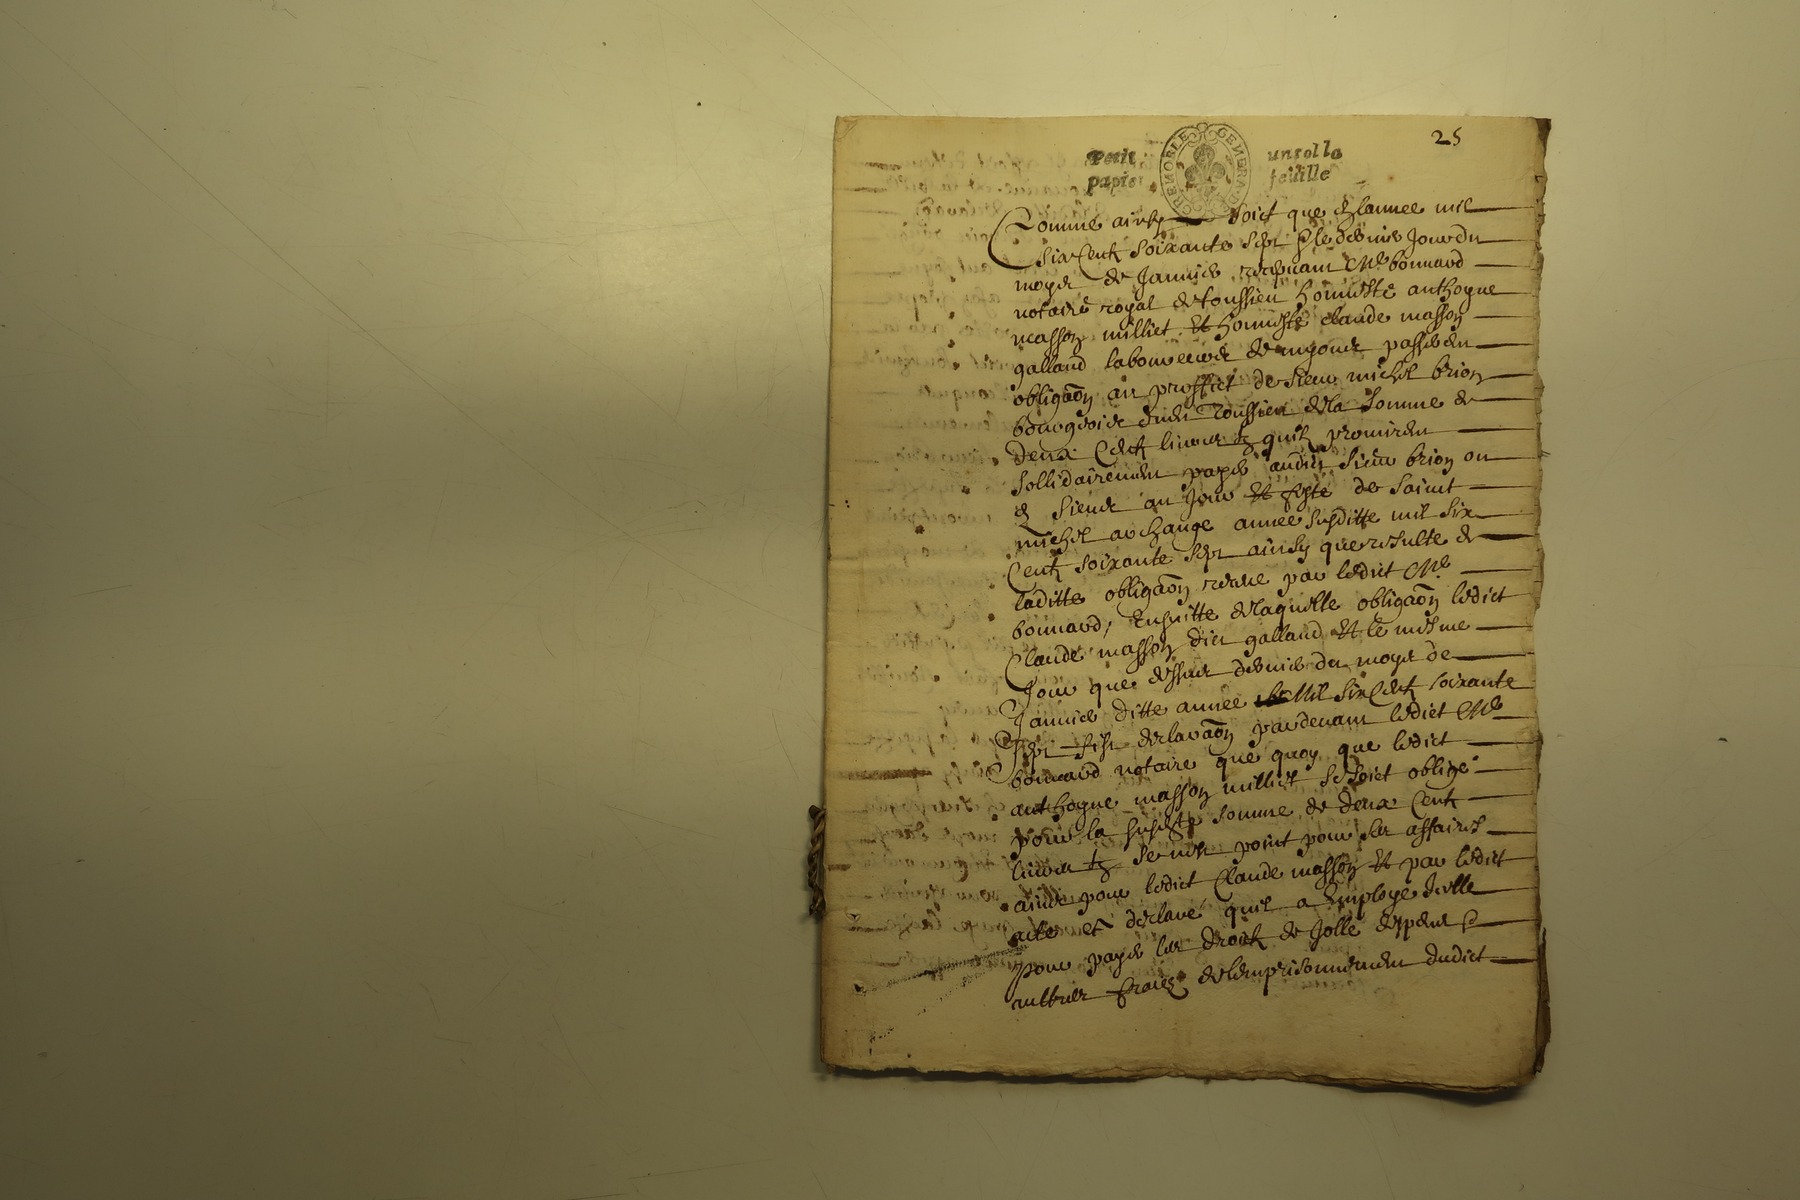 25
Petit papier
GRENOBLE GENERA
un sol la feuille
Comme ainsy soict que en lannee mil
six cent soixante sept & le dernier Jour du
moys de Janvier recepvant Me bonnard
notaire royal de toussieu honneste anthoyne
masson milliet et honneste claude masson
galland laboureurs de myons passerent
obligaõn au proffict de sieur michel brion
bourgeois dudit Toussieu de la somme de
deux cent livres tz quilz promirent
sollidairement payer audict sieur brion ou
es siens au jour et feste de saint
michel archange annee susditte mil six
cent soixante sept ainsy que resulte de
laditte obligaõn receue par ledict Me
bonnard, Ensuitte de laquelle obligaõn ledict
Claude masson dict galland et le mesme
Jour que dessus dernier du moys de
Janvier ditte annee mil six cent soixante
sept fist declaraõn pardevant ledict Me
bonnard notaire que quoy que ledict
anthoyne masson milliet se soict oblige
pour la susditte somme de deux cent
livres tz se nest point pour ses affaires
ains pour ledict Claude masson et par ledict
acte est declaré quil a employe Icelle
pour payer les droictz de Jolle despens &
aultres fraiez de lemprisonnement dudict